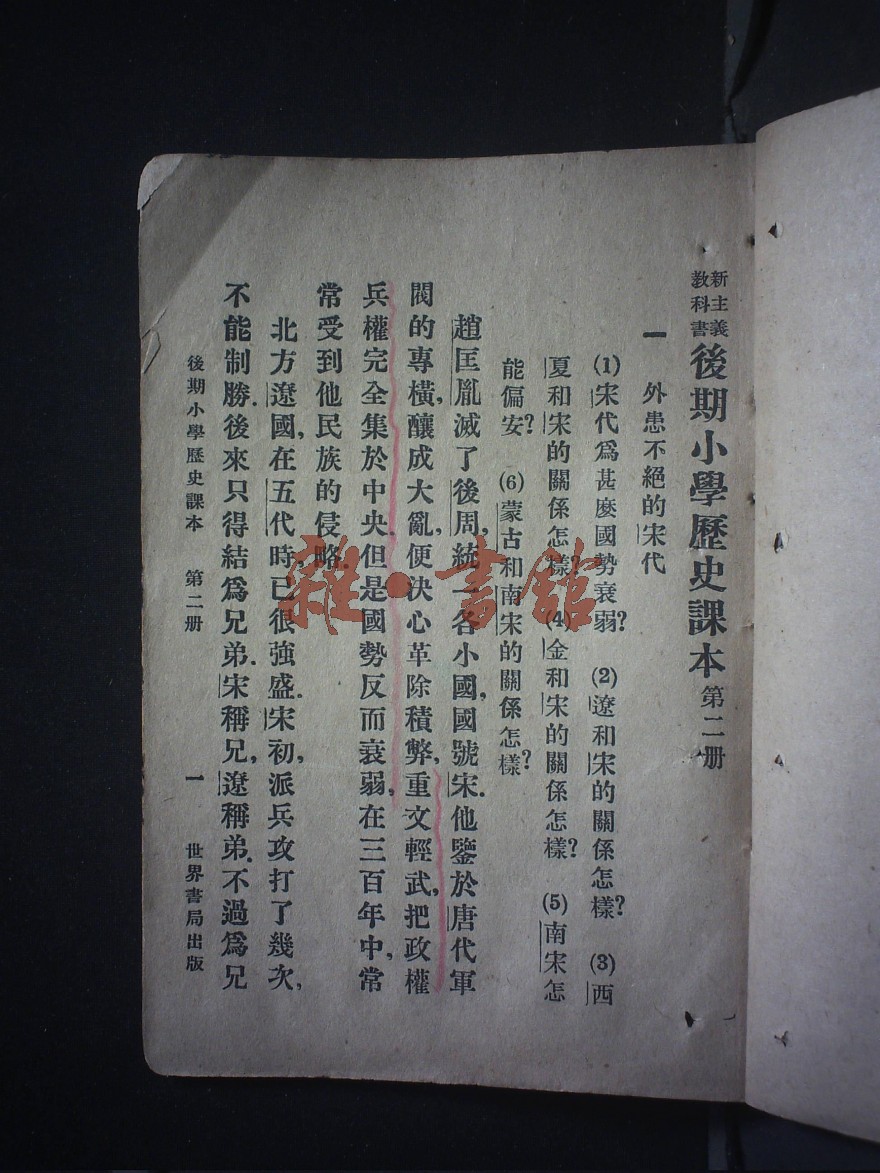 新主義
教科書
後期小學歷史課本 第二册
一 外患不絕的宋代
(1)宋代爲甚麽國勢衰弱? (2)遼和宋的關係怎樣? (3)西
夏和宋的關係怎樣? (4)金和宋的關係怎樣? (5)南宋怎
能偏安? (6)蒙古和南宋的關係怎樣?
趙匡胤滅了後周,統一各小國,國號宋.他鑒於唐代軍
閥的專橫,釀成大亂,便決心革除積弊,重文輕武,把政權
兵權完全集於中央.但是國勢反而衰弱,在三百年中,常
常受到他民族的侵略.
北方遼國,在五代時,已很強盛.宋初,派兵攻打了幾次,
不能制勝.後來只得結爲兄弟.宋稱兄,遼稱弟.不過爲兄
後期小學歷史課本 第二册 一 世界書局出版
雜·書館